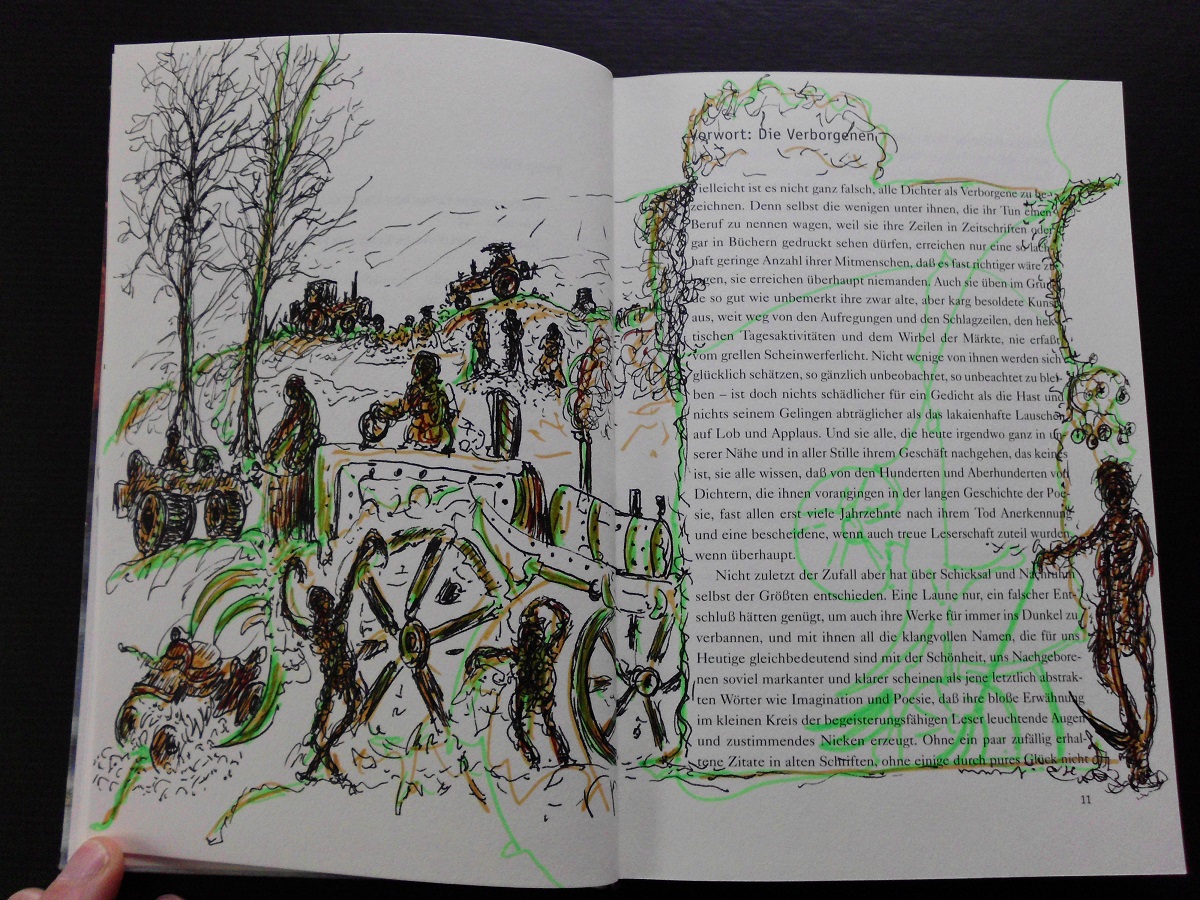 Vorwort: Die Verborgenen
Vielleicht ist es nicht ganz falsch, alle Dichter als Verborgene zu be-
zeichnen. Denn selbst die wenigen unter ihnen, die ihr Tun einen
Beruf zu nennen wagen, weil sie ihre Zeilen in Zeitschriften oder
gar in Büchern gedruckt sehen dürfen, erreichen nur eine so lach-
haft geringe Anzahl ihrer Mitmenschen, daß es fast richtiger wäre zu
sagen, sie erreichen überhaupt niemanden. Auch sie üben im Grun-
de so gut wie unbemerkt ihre zwar alte, aber karg besoldete Kunst
aus, weit weg von den Aufregungen und den Schlagzeilen, den hek-
tischen Tagesaktivitäten und dem Wirbel der Märkte, nie erfaßt
vom grellen Scheinwerferlicht. Nicht wenige von ihnen werden sich
glücklich schätzen, so gänzlich unbeobachtet, so unbeachtet zu blei-
ben – ist doch nichts schädlicher für ein Gedicht als die Hast und
nichts seinem Gelingen abträglicher als das lakaienhafte Lauschen
auf Lob und Applaus. Und sie alle, die heute irgendwo ganz in un-
serer Nähe und in aller Stille ihrem Geschäft nachgehen, das keines
ist, sie alle wissen, daß von den Hunderten und Aberhunderten von
Dichtern, die ihnen vorangingen in der langen Geschichte der Poe-
sie, fast allen erst viele Jahrzehnte nach ihrem Tod Anerkennung
und eine bescheidene, wenn auch treue Leserschaft zuteil wurden,
wenn überhaupt.
Nicht zuletzt der Zufall aber hat über Schicksal und Nachruhm
selbst der Größten entschieden. Eine Laune nur, ein falscher Ent-
schluß hätten genügt, um auch ihre Werke für immer ins Dunkel zu
verbannen, und mit ihnen all die klangvollen Namen, die für uns
Heutige gleichbedeutend sind mit der Schönheit, uns Nachgebore-
nen soviel markanter und klarer scheinen als jene letztlich abstrak-
ten Wörter wie Imagination und Poesie, daß ihre bloße Erwähnung
im kleinen Kreis der begeisterungsfähigen Leser leuchtende Augen
und zustimmendes Nicken erzeugt. Ohne ein paar zufällig erhal-
tene Zitate in alten Schriften, ohne einige durch pures Glück nicht
11